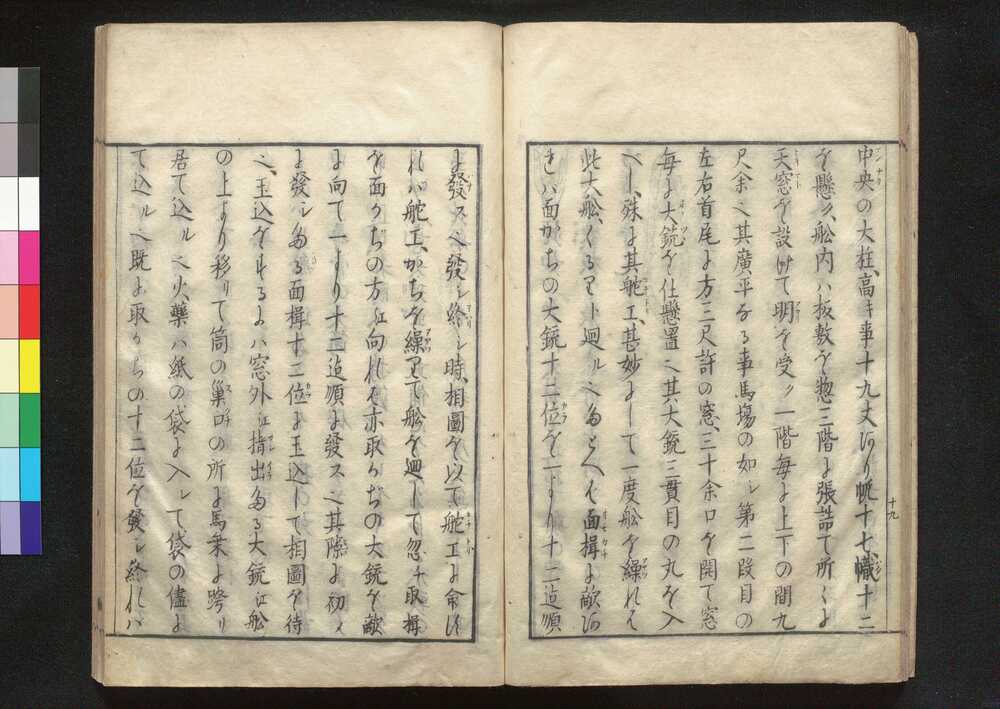 中央の大柱、高キ事十九丈アリ帆十七幟十二
を懸ク、舩内ハ板敷を惣三階に張詰て所々に
天窓を設けて明を受ク一階毎に上下の間九
尺余也其廣平なる事馬場の如シ第二段目の
左右首尾に方三尺許の窓、三十余口を開て窓
毎に大銃を仕懸置也其大銃三貫目の丸を入
べし、殊に其舵工、甚妙にして一度舩を繰れは
此大舩、くるりト廻ル也たとへは面揖に敵あ
れハ面かぢの大銃十二位を一より十二迄順
に發ス也發シ終シ時、相圖を以て舵工に命ず
れハ舵工、かぢを繰りて舩を廻して忽チ取揖
を面かぢの方江向れは亦取かぢの大銃を敵
に向て一より十二迄順に發ス也其際に初メ
に發シたる面揖十二位に玉込して相圖を待
也、玉込をするにハ窓外江指出たる大銃江舩
の上より移りて筒の巣口の所に馬乗に跨り
居て込ル也火藥ハ紙の袋に入レて袋の儘に
て込ル也既に取かちの十二位を發シ終れハ
十九